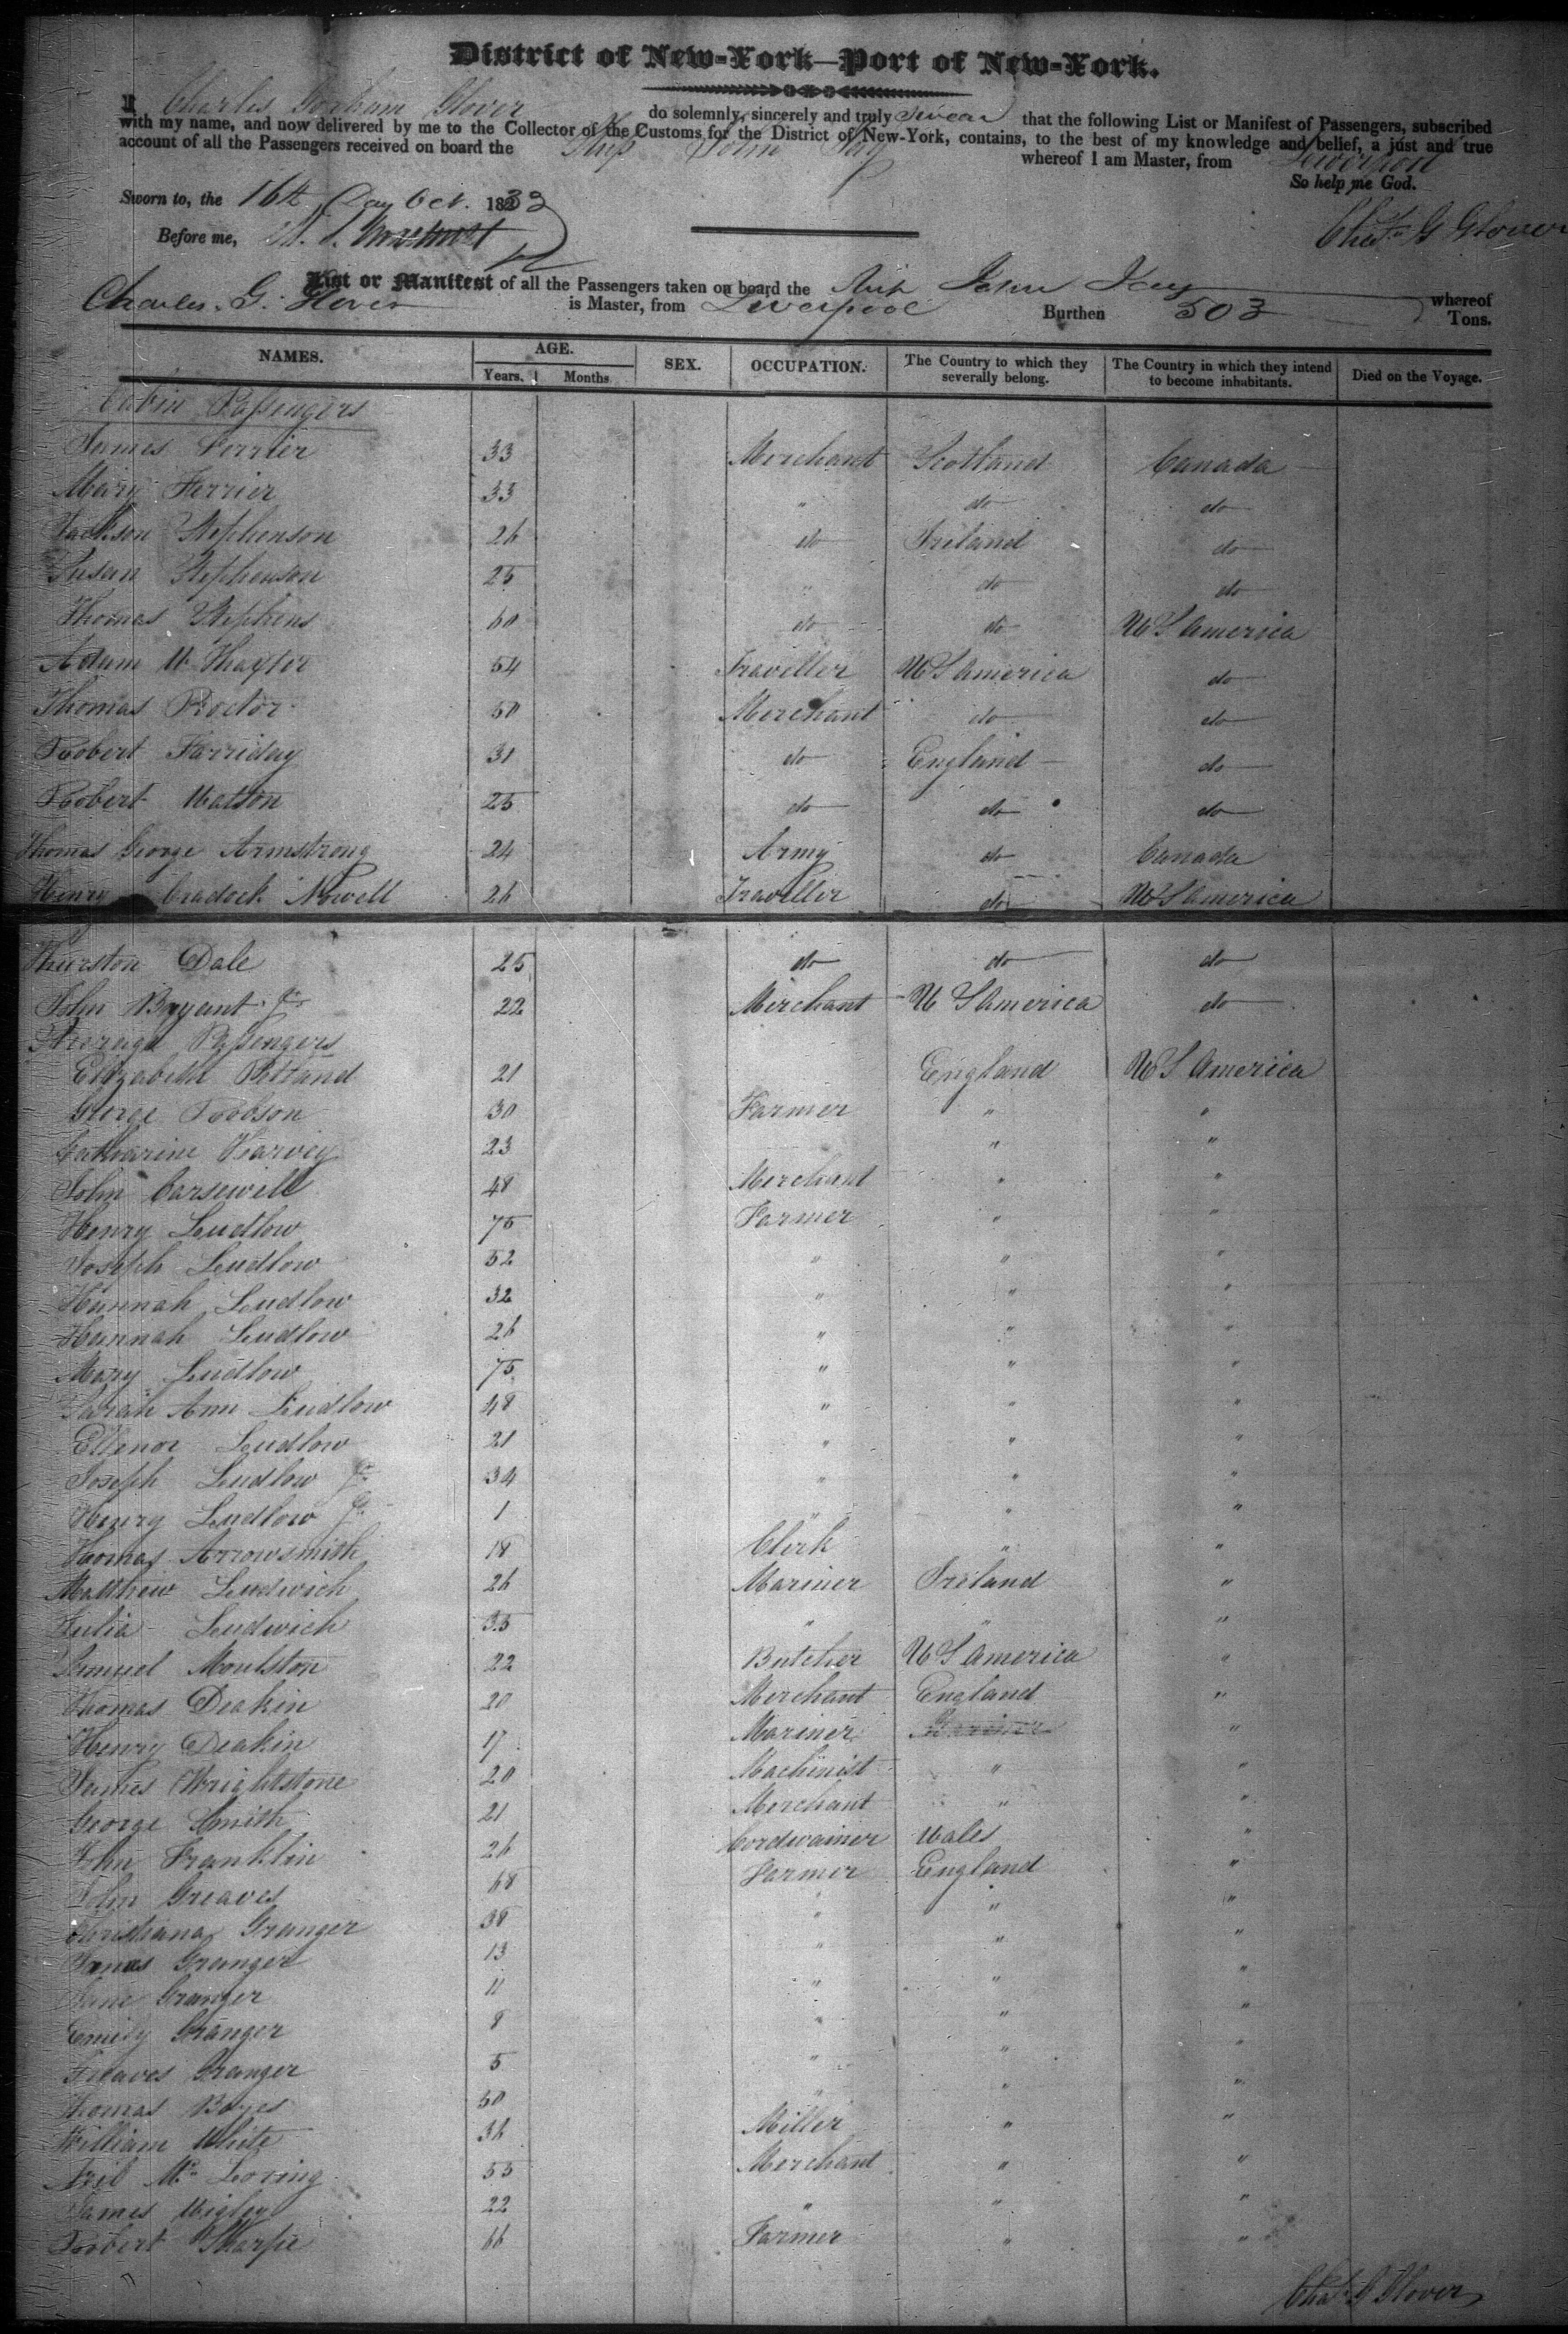 District of New-York—Port of New-York.
I Charles Gorham Glover do solemnly, sincerely and truly swear that the following List or Manifest of Passengers, subscribed
with my name, and now delivered by me to the Collector of the Customs for the District of New-York, contains, to the best of my knowledge and belief, a just and true
account of all the Passengers received on board the Ship John Jay whereof I am Master, from Liverpool
So help me God.
Sworn to, the 16th Day Oct. 1833
Before me,
Chas G Glover
List or Manifest of all the Passengers taken on board the Ship John Jay whereof
Charles. G. Glover is Master, from Liverpool Burthen 503 Tons.
NAMES. AGE. SEX. OCCUPATION. The Country to which they severally belong. The Country in which they intend to become inhabitants. Died on the Voyage.
Years. Months
Cabin Passengers
James Ferrier 33 Merchant Scotland Canada
Mary Ferrier 33 " do do
Jackson Stephenson 26 do Ireland do
Susan Stephenson 25 " do do
Thomas Stephens 60 do do US America
Adam W Thaxter 54 Traveller US America do
Thomas Proctor 50 Merchant do do
Robert Farriday 31 do England do
Robert Watson 25 do do do
Thomas George Armstrong 24 Army do Canada
Henry Cradock Nowell 26 Traveller do US America
Thurston Dale 25 do do do
John Bryant Jr 22 Merchant US America do
Steerage Passengers
Elizabeth 21 England US America
George Robson 30 Farmer " "
Catharine Harvey 23 " "
John Carsewill 48 Merchant " "
Henry Ludlow 75 Farmer " "
Joseph Ludlow 52 " " "
Hannah Ludlow 32 " " "
Hannah Ludlow 26 " " "
Mary Ludlow 75 " " "
Sarah Ann Ludlow 48 " " "
Ellenor Ludlow 21 " " "
Joseph Ludlow Jr 34 " " "
Henry Ludlow Jr 1 " " "
Thomas Arrowsmith 18 Clerk " "
Matthew Ludwich 26 Mariner Ireland "
Julia Ludwich 35 " " "
Samuel Moulston 22 Butcher US America "
Thomas Deakin 20 Merchant England "
Henry Deakin 17 Mariner "
James Wrightstone 20 Machinist " "
George Smith 21 Merchant " "
John Franklin 26 Cordwainer Wales "
John Greaves 68 Farmer England "
Christiana Granger 38 " " "
James Granger 13 " " "
Jane Granger 11 " " "
Emily Granger 8 " " "
Greaves Granger 5 " " "
Thomas Boyes 50 " " "
William White 36 Miller " "
Mc Loring 55 Merchant " "
James Wigley 22 " " "
Robert Sharpe 66 Farmer " "
Chas G Glover